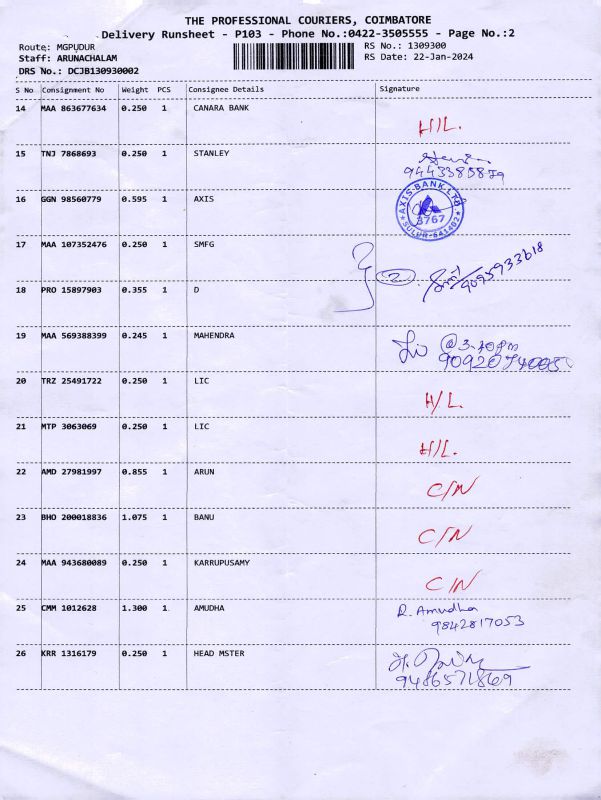 THE PROFESSIONAL COURIERS, COIMBATORE
Delivery Runsheet - P103 - Phone No.:0422-3505555 - Page No.:2
Route: MGPUDUR RS No.: 1309300
Staff: ARUNACHALAM RS Date: 22-Jan-2024
DRS No.: DCJB130930002
S No Consignment No Weight PCS Consignee Details Signature
14 MAA 863677634 0.250 1 CANARA BANK H/L.
15 TNJ 7868693 0.250 1 STANLEY
16 GGN 98560779 0.595 1 AXIS AXIS BANK LTD. 3767 SULUR-641402
17 MAA 107352476 0.250 1 SMFG
18 PRO 15897903 0.355 1 D 2 9095933618
19 MAA 569388399 0.245 1 MAHENDRA
20 TRZ 25491722 0.250 1 LIC H/L.
21 MTP 3063069 0.250 1 LIC H/L.
22 AMD 27981997 0.855 1 ARUN C/N
23 BHO 200018836 1.075 1 BANU C/N
24 MAA 943680089 0.250 1 KARRUPUSAMY C/N
25 CMM 1012628 1.300 1 AMUDHA R. Amudha
9842817053
26 KRR 1316179 0.250 1 HEAD MSTER
9486571869